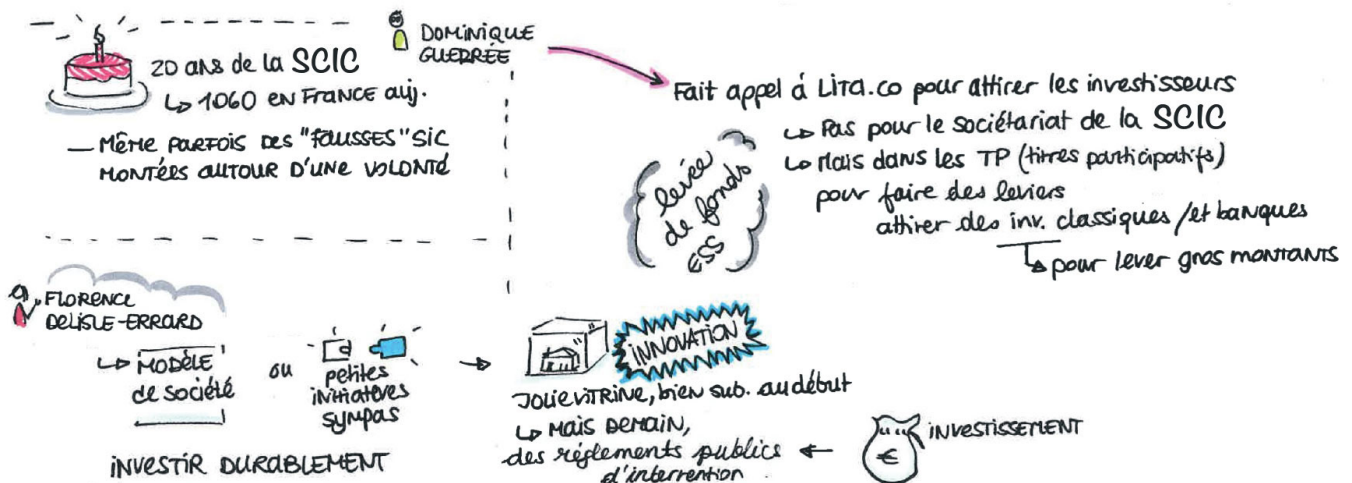 20 ans de la SCIC
↳ 1060 en France auj.
— Même parfois des "fausses" SIC
montées autour d'une volonté
Dominique
Guerrée
Fait appel à Lita.co pour attirer les investisseurs
↳ Pas pour le sociétariat de la SCIC
↳ Mais dans les TP (titres participatifs)
pour faire des leviers
attirer des inv. classiques / et banques
↳ pour lever gros montants
levée
de fonds
ESS
Florence
Delisle-Errard
↳ Modèle
de société
ou
petites
initiatives
sympas
Investir durablement
Innovation
Jolie vitrine, bien sub. au début
↳ Mais demain,
des réglements publics
d'intervention
€
investissement